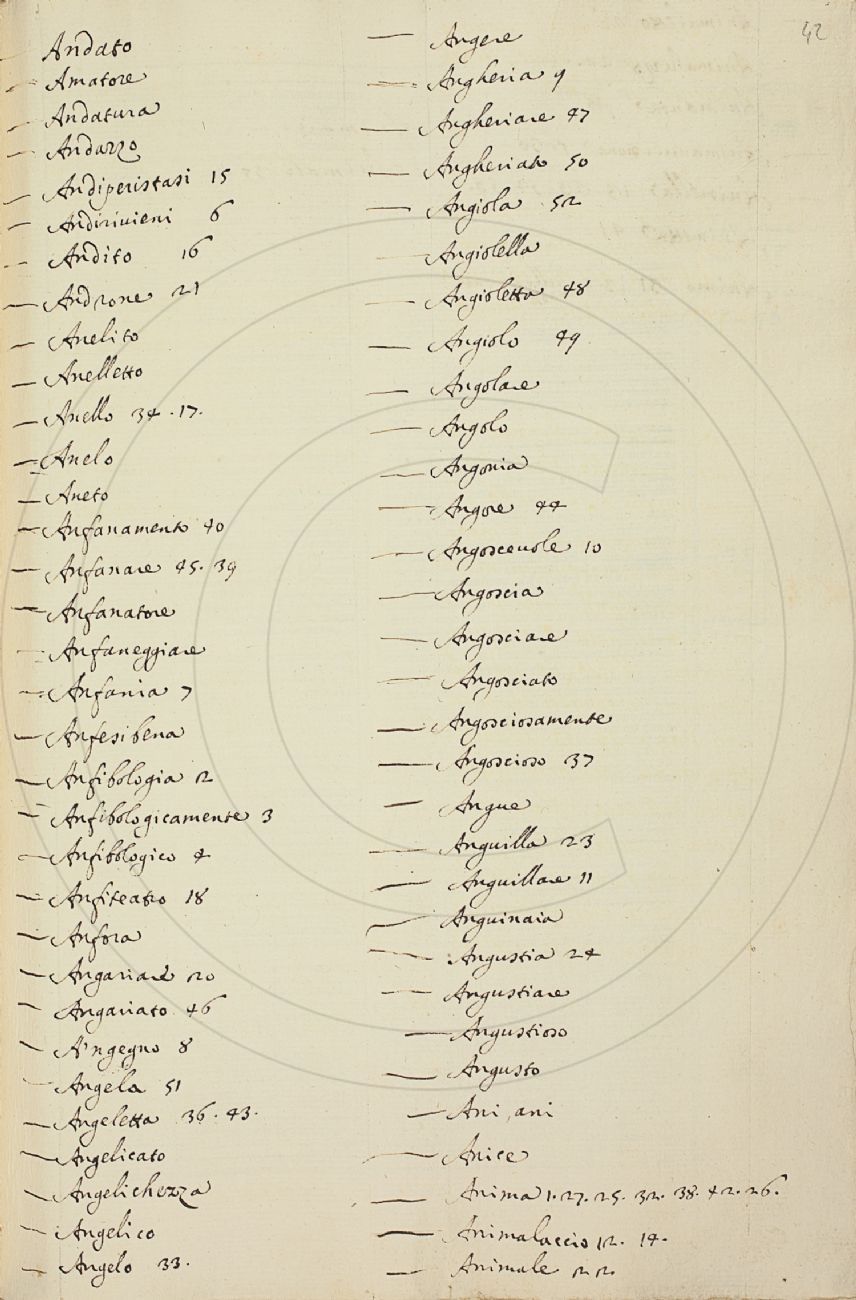 42
Andato
Amatore
Andatura
Andazzo
Andiperistasi 15
Andirivieni 6
Andito 16
Androne 21
Anelito
Anelletto
Anello 34. 17.
Anelo
Aneto
Anfanamento 40
Anfanare 45. 39
Anfanatore
Anfaneggiare
Anfania 7
Anfesibena
Anfibologia 2
Anfibologicamente 3
Anfibologico 4
Anfiteatro 18
Anfora
Angariare 20
Angariato 46
A'ngegno 8
Angela 51
Angeletta 36. 43.
Angelicato
Angelichezza
Angelico
Angelo 33.
Angere
Angheria 9
Angheriare 47
Angheriato 50
Angiola 52
Angiolella
Angioletta 48
Angiolo 49
Angolare
Angolo
Angonia
Angore 44
Angoscevole 10
Angoscia
Angosciare
Angosciato
Angosciosamente
Angoscioso 37
Angue
Anguilla 23
Anguillare 11
Anguinaia
Angustia 24
Angustiare
Angustioso
Angusto
Ani, ani
Anice
Anima 1. 27. 25. 32. 38. 42. 26.
Animalaccio 12. 14.
Animale 22